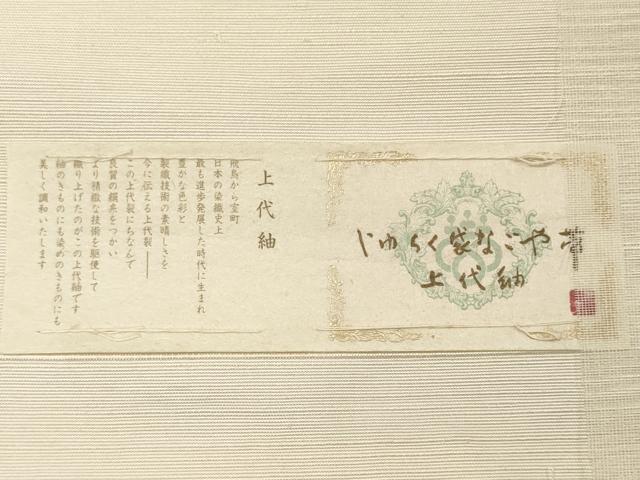 じゅらく袋なごや帯
上代紬
上代紬
飛鳥から室町
日本の染織史上
最も進歩発展した時代に生まれ
豊かな色彩と
製織技術の素晴しさを
今に伝える上代裂――
この上代裂にちなんで
良質の絹糸をつかい
より精緻な技術を駆使して
織り上げたのがこの上代紬です
紬のきものにも染めのきものにも
美しく調和いたします